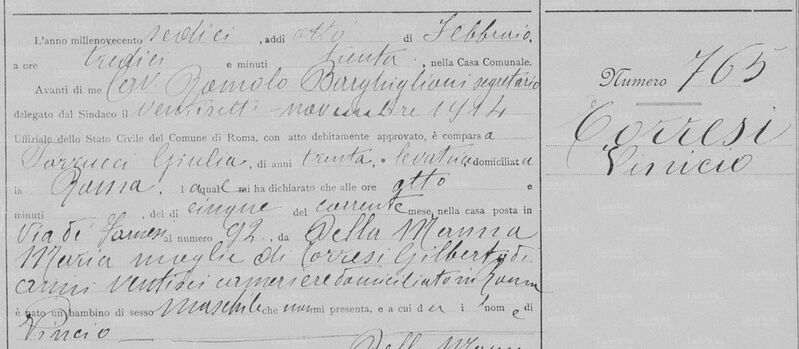 L'anno millenovecento sedici, addì otto di Febbraio,
a ore tredici e minuti trenta, nella Casa Comunale.
Avanti di me Cav. Romolo Barghiglioni segretario
delegato dal Sindaco il ventisette novembre 1914
Uffiziale dello Stato Civile del Comune di Roma, con atto debitamente approvato, è comparsa
Giulia, di anni trenta, levatrice domiciliata
in Roma, la quale mi ha dichiarato che alle ore otto e
minuti , del dì cinque del corrente mese, nella casa posta in
Via de' al numero 92, da Della Manna
Maria moglie di Corresi Gilberto di
anni ventisei cameriere domiciliato in Roma
è nato un bambino di sesso maschile che non mi presenta, e a cui dà il nome di
Vinicio
Numero 765
Corresi
Vinicio